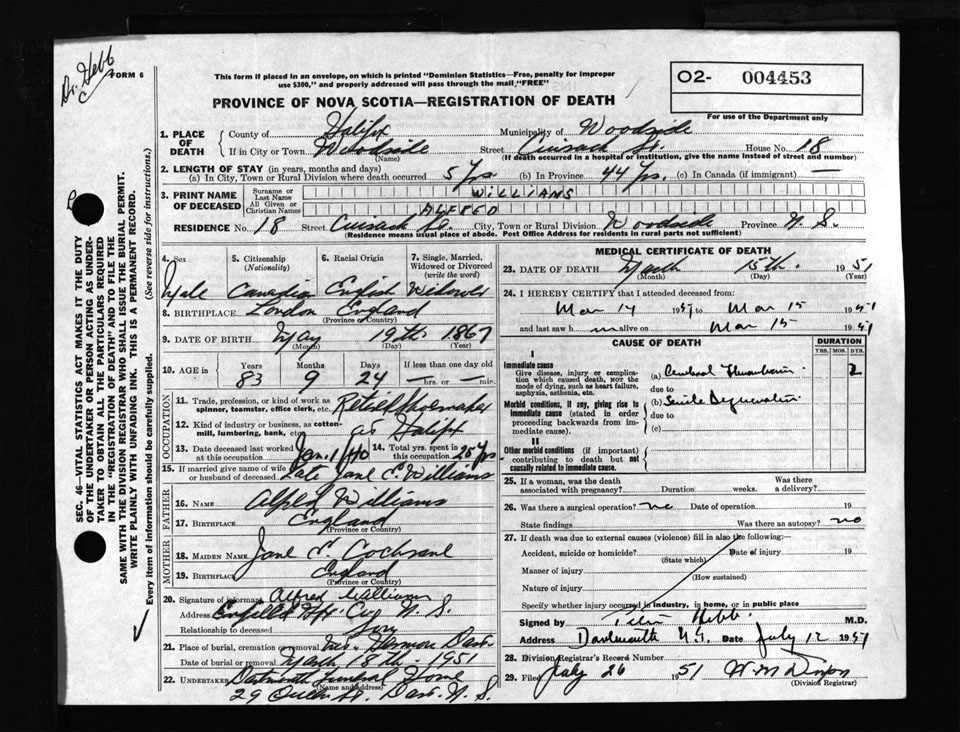 Dr. Hebb
C
FORM 6
This form if placed in an envelope, on which is printed "Dominion Statistics—Free, penalty for improper
use $300," and properly addressed will pass through the mail "FREE"
O2- 004453
For use of the Department only
PROVINCE OF NOVA SCOTIA—REGISTRATION OF DEATH
1. PLACE OF DEATH { County of Halifx Municipality of Woodside
If in City or Town Woodside Street Cuisack St. House No. 18
(Name) (If death occurred in a hospital or institution, give the name instead of street and number)
2. LENGTH OF STAY (in years, months and days)
(a) In City, Town or Rural Division where death occurred 5 Yrs (b) In Province 44 Yrs. (c) In Canada (if immigrant) —
3. PRINT NAME OF DECEASED { Surname or Last Name WILLIAMS
All Given or Christian Names ALFRED
RESIDENCE No. 18 Street Cuisack St. City, Town or Rural Division Woodside Province N. S.
(Residence means usual place of abode. Post Office Address for residents in rural parts not sufficient)
4. Sex 5. Citizenship (Nationality) 6. Racial Origin 7. Single, Married, Widowed or Divorced (write the word)
Male Canadian English Widower
8. BIRTHPLACE London England
(Province or Country)
9. DATE OF BIRTH May 19th 1867
(Month) (Day) (Year)
10. AGE in { Years Months Days If less than one day old
83 9 24 — hrs. or — min.
OCCUPATION
11. Trade, profession, or kind of work as
spinner, teamster, office clerk, etc. Retired Shoemaker
12. Kind of industry or business, as cotton-
mill, lumbering, bank, etc. at Halifx
13. Date deceased last worked at this occupation Jan. 1/40 14. Total yrs. spent in this occupation 25 yrs.
15. If married give name of wife
or husband of deceased Late Jane E. Williams
FATHER
16. NAME Alfred Williams
17. BIRTHPLACE England
(Province or Country)
MOTHER
18. MAIDEN NAME Jane E. Cochrane
19. BIRTHPLACE England
(Province or Country)
20. Signature of informant Alfred Williams
Address Enfield Hfx. Co. N. S.
Relationship to deceased Son
21. Place of burial, cremation or removal Mt. Hermon Dart.
Date of burial or removal March 18th - 1951
22. UNDERTAKER Dartmouth Funeral Home
(Name and address)
29 Queen St. Dart. N. S.
MEDICAL CERTIFICATE OF DEATH
23. DATE OF DEATH March 15th. 1951
(Month) (Day)
24. I HEREBY CERTIFY that I attended deceased from:
Mar 14 1951 to Mar 15 1951
and last saw h im alive on Mar 15 1951
CAUSE OF DEATH DURATION
YRS. MOS. DAYS
I
Immediate cause
Give disease, injury or complication which caused death, NOT the mode of dying, such as heart failure, asphyxia, asthenia, etc.
(a) Cerebral Thrombosis 2
due to
Morbid conditions, if any, giving rise to immediate cause (stated in order proceeding backwards from immediate cause).
(b) Senile Degeneration
due to
(c)
II
Other morbid conditions (if important) contributing to death but not causally related to immediate cause.
25. If a woman, was the death
associated with pregnancy? Duration weeks. Was there a delivery?
26. Was there a surgical operation? no Date of operation 19
State findings Was there an autopsy? no
27. If death was due to external causes (violence) fill in also the following:—
Accident, suicide or homicide? Date of injury 19
(State which)
Manner of injury
(How sustained)
Nature of injury
Specify whether injury occurred in industry, in home, or in public place
Signed by Hebb M.D.
Address Dartmouth N.S. Date July 12 1951
28. Division Registrar's Record Number
29. Filed July 26 1951
(Division Registrar)
SEC. 46—VITAL STATISTICS ACT MAKES IT THE DUTY
OF THE UNDERTAKER OR PERSON ACTING AS UNDER-
TAKER TO OBTAIN ALL THE PARTICULARS REQUIRED
IN THE "REGISTRATION OF DEATH" AND TO FILE THE
SAME WITH THE DIVISION REGISTRAR WHO SHALL ISSUE THE BURIAL PERMIT.
WRITE PLAINLY WITH UNFADING INK. THIS IS A PERMANENT RECORD.
Every item of information should be carefully supplied. (See reverse side for instructions.)